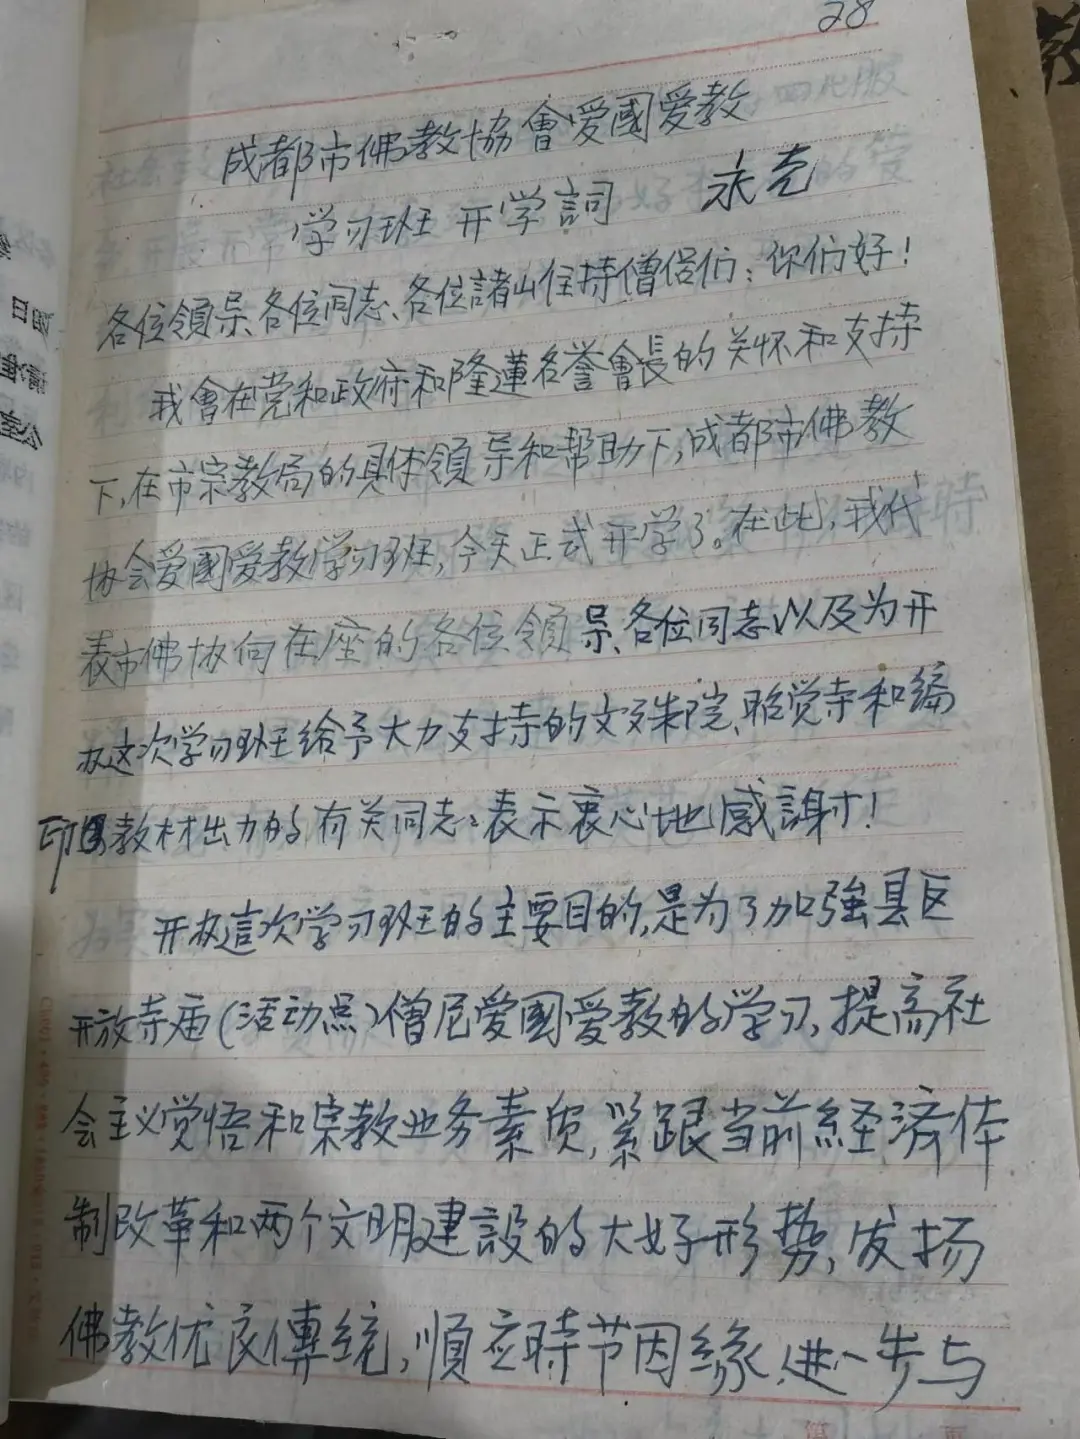 28
成都市佛教協會爱國爱教
学习班 开学詞 永壳
各位領导、各位同志、各位諸山住持僧侣们：你们好！
我會在党和政府和隆蓮名誉會長的关怀和支持
下，在市宗教局的具体領导和帮助下，成都市佛教
协会爱國爱教学习班，今天正式开学了。在此，我代
表市佛协向在座的各位領导、各位同志以及为开
办这次学习班给予大力支持的文殊院、昭觉寺和编
印教材出力的有关同志：表示衷心地感謝！
开办這次学习班的主要目的，是为了加強县区
开放寺庙（活动点）僧尼爱國爱教的学习，提高社
会主义觉悟和宗教业务素质，紧跟当前経济体
制改革和两个文明建設的大好形势，发扬
佛教优良傳统，順应時节因緣，进一步与